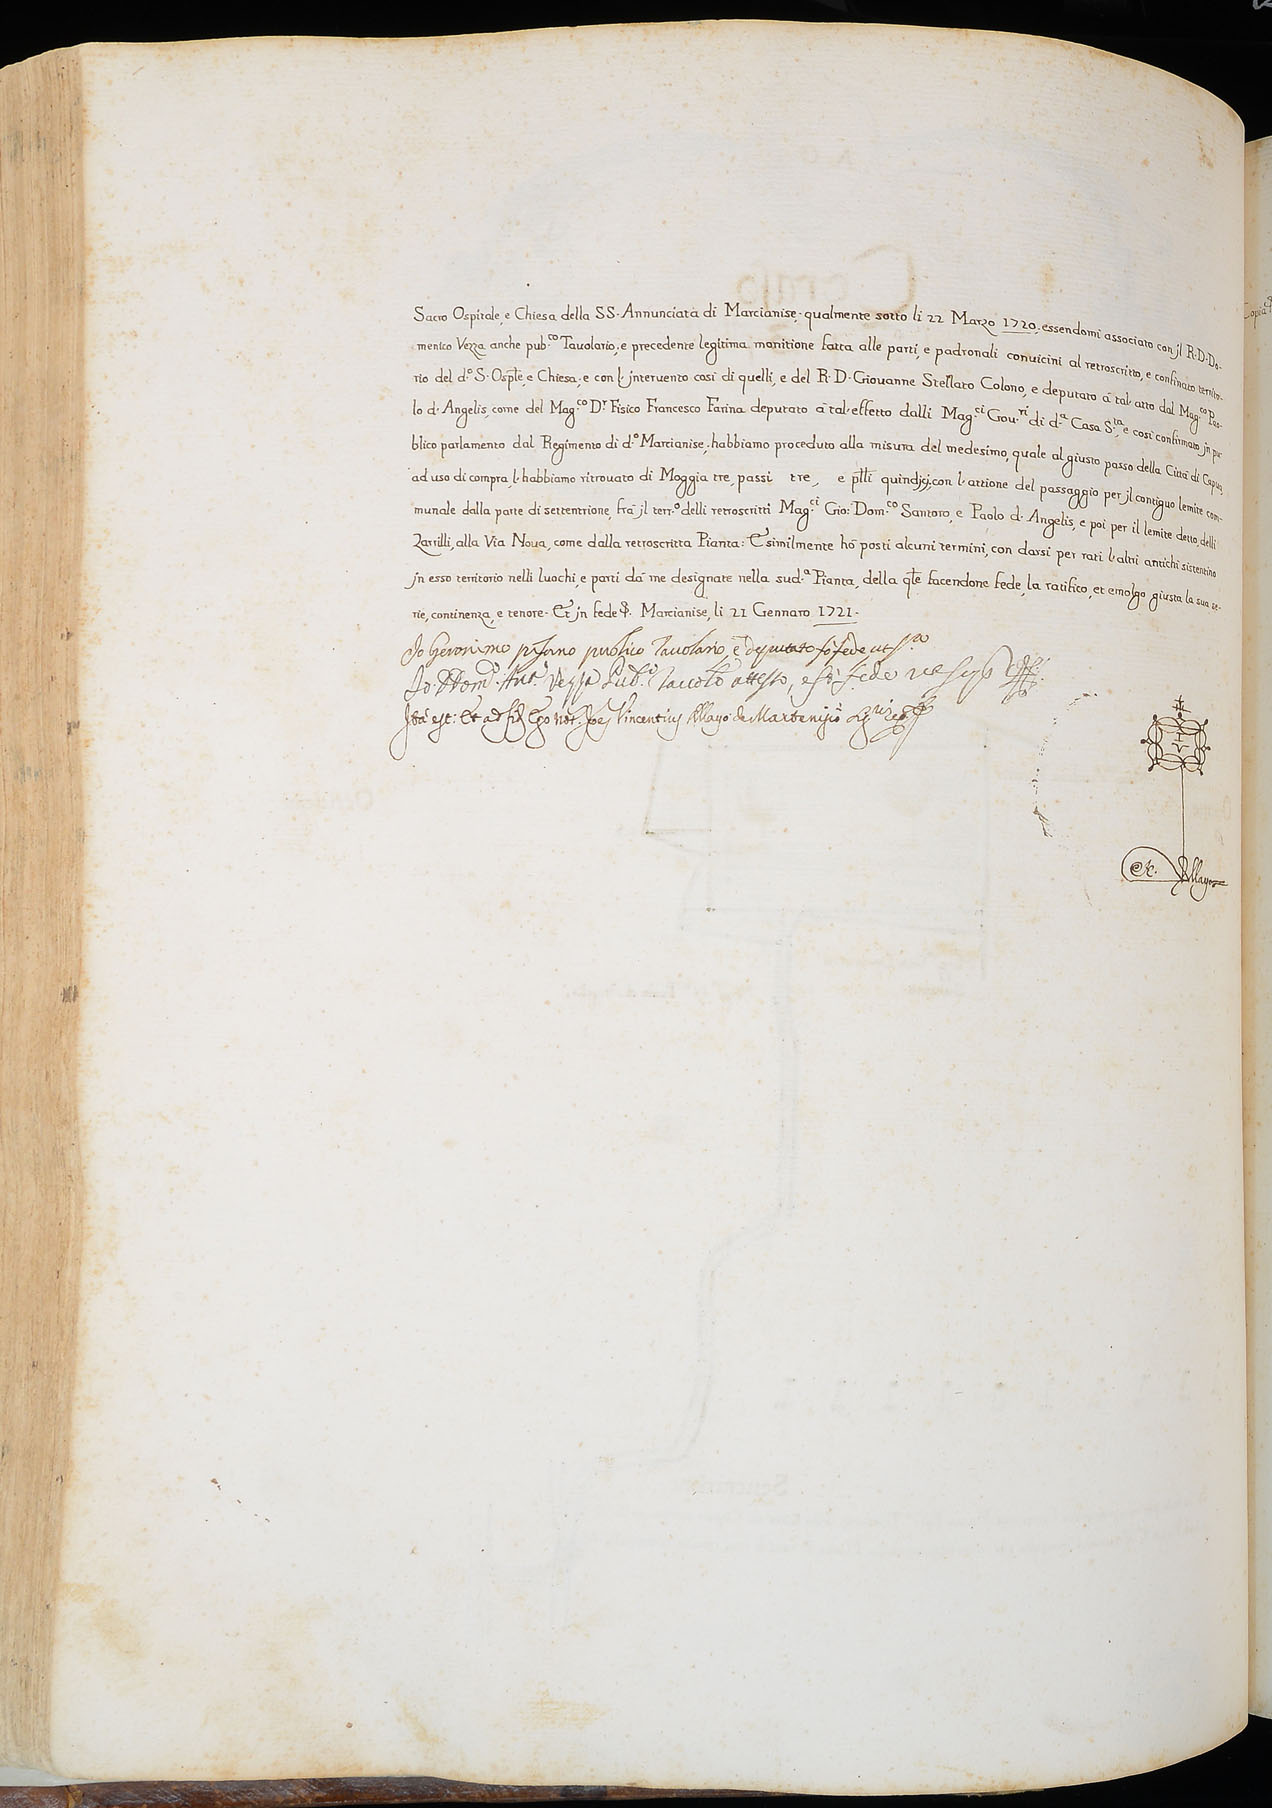 Sacro Ospitale, e Chiesa della SS. Annunciata di Marcianise, qualmente sotto li 22 Marzo 1720, essendomi associato con jl R. D. Do-
menico Vezza anche pub.co Tavolario, e precedente legitima monitione fatta alle parti, e padronali convicini al retroscritto, e confinato territo-
rio del d.o S. Osp̄le e Chiesa, e con l'intervento così di quelli, e del R. D. Giovanne Stellato Colono, e deputato à tal'atto dal Mag.co Pao-
lo d'Angelis, come del Mag.co D.r Fisico Francesco Farina deputato à tal'effetto dalli Mag.ci Gov.ri di d.a Casa S.ta, e così confirmato jn pu-
blico parlamento dal Regimento di d.o Marcianise, habbiamo proceduto alla misura del medesimo, quale al giusto passo della Città di Capua,
ad uso di compra l'habbiamo ritrovato di Moggia tre, passi tre, e pt̄li quindjcj, con l'attione del passaggio per jl contiguo lemite com-
munale dalla parte di settentrione, frà jl terr.o delli retroscritti Mag.ci Gio: Dom.co Santoro, e Paolo d'Angelis, e poi per il lemite detto delli
Zarrilli, alla Via Nova, come dalla retroscritta Pianta: E similmente hò posti alcuni termini, con darsi per rati l'altri antichi sistentino
jn esso territorio nelli luochi, e parti dà me designate nella sud.a Pianta, della q̄le facendone fede, la ratifico, et emolgo giusta la sua se-
rie, continenza, e tenore. Et jn fede &. Marcianise, li 21 Gennaro 1721.
Jo Geronimo pisano publico Tavolario, e deputato fò fede ut s.a
Jo D. Dom.o Ant.o Vezza Pub.o attesto, e fò fede
Ità est: Et ad fid. Ego Not. Joēs Vincentius Mayo de Martenisio
Mayo